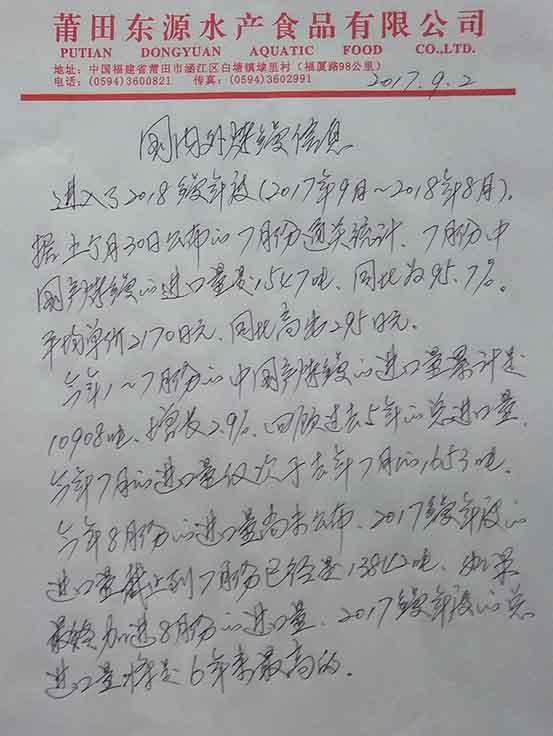 莆田东源水产食品有限公司
PUTIAN DONGYUAN AQUATIC FOOD CO.,LTD.
地址：中国福建省莆田市涵江区白塘镇埭里村（福厦路98公里）
电话：(0594)3600821 传真：(0594)3602991
2017.9.2
国内外烤鳗信息
进入了2018鳗年度(2017年9月～2018年8月)。
据上个月30日公布的7月份通关统计、7月份中
国产烤鳗的进口量是1547吨、同比为95.7%。
平均单价2170日元、同比高出295日元。
今年1～7月份的中国产烤鳗的进口量累计是
10908吨、增长2.9%、回顾过去5年的总进口量、
今年7月的进口量仅次于去年7月的1,653吨。
今年8月份的进口量尚未公布、2017鳗年度的
进口量截止到7月份已经是13842吨、如果
最终加进8月份的进口量、2017鳗年度的总
进口量将是6年来最高的。